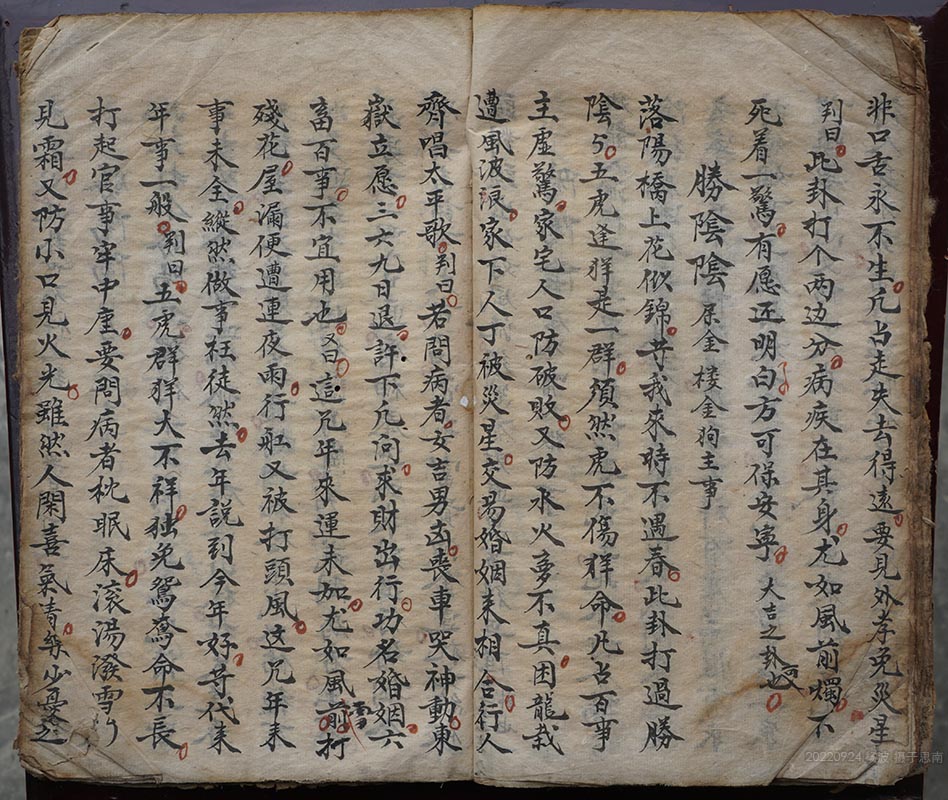 非口舌永不生凡占走失去得遠要見外孝免災星
判曰此卦打个两边分病疾在其身尤如風前燭不
死着一驚有愿还明白方可保安寧大吉之卦也
勝陰陰 屬金楼金狗主事
落陽橋上花似錦等我來時不遇春此卦打過勝
陰々五虎逢羊是一群須然虎不傷羊命凡占百事
主虛驚家宅人口防破敗又防水火夢不真困龍哉
遭風波浪家下人丁被災星交易婚姻未相合行人
齊唱太平歌判曰若問病者女吉男凶喪車哭神動東
嶽立愿三六九日退許下凡问求財出行功名婚姻六
畜百事不宜用也又曰這几年來運未如尤如風前打
殘花屋漏便遭連夜雨行船又被打頭風这几年来
事未全縱然做事枉徒然去年説到今年好等代来
年事一般判曰五虎群羊大不祥独免鴛鴦命不長
打起官事牢中座要問病者枕眠床滾湯潑雪々
見霜又防小口見火光雖然人閑喜氣清無少憂之
20220924 \ 凌波 \ 摄于思南